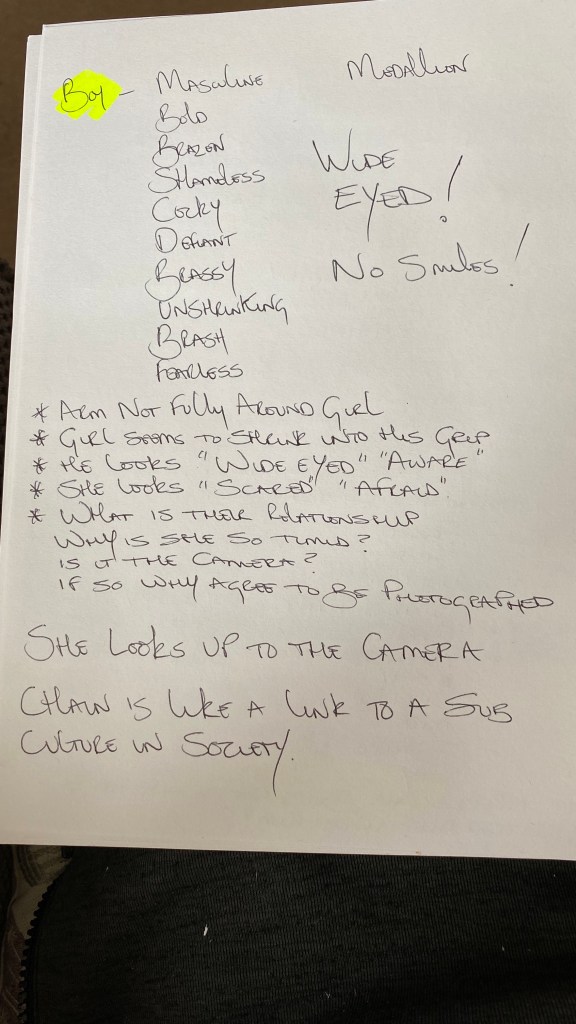 Boy - Masculine Medallion
Bold
Brazen
Shameless
Cocky
Defiant
Brassy
Unshrinking
Brash
Fearless
Wide
Eyed!
No Smiles!
* Arm Not Fully Around Girl
* Girl seems to shrink into his Grip
* He looks "Wide eyed" "Aware"
* She looks "Scared" "Afraid"
* What is their Relationship
Why is she so timid?
is it the camera?
if so why agree to be photographed
She looks up to the camera
Chain is like a link to a sub
culture in society.